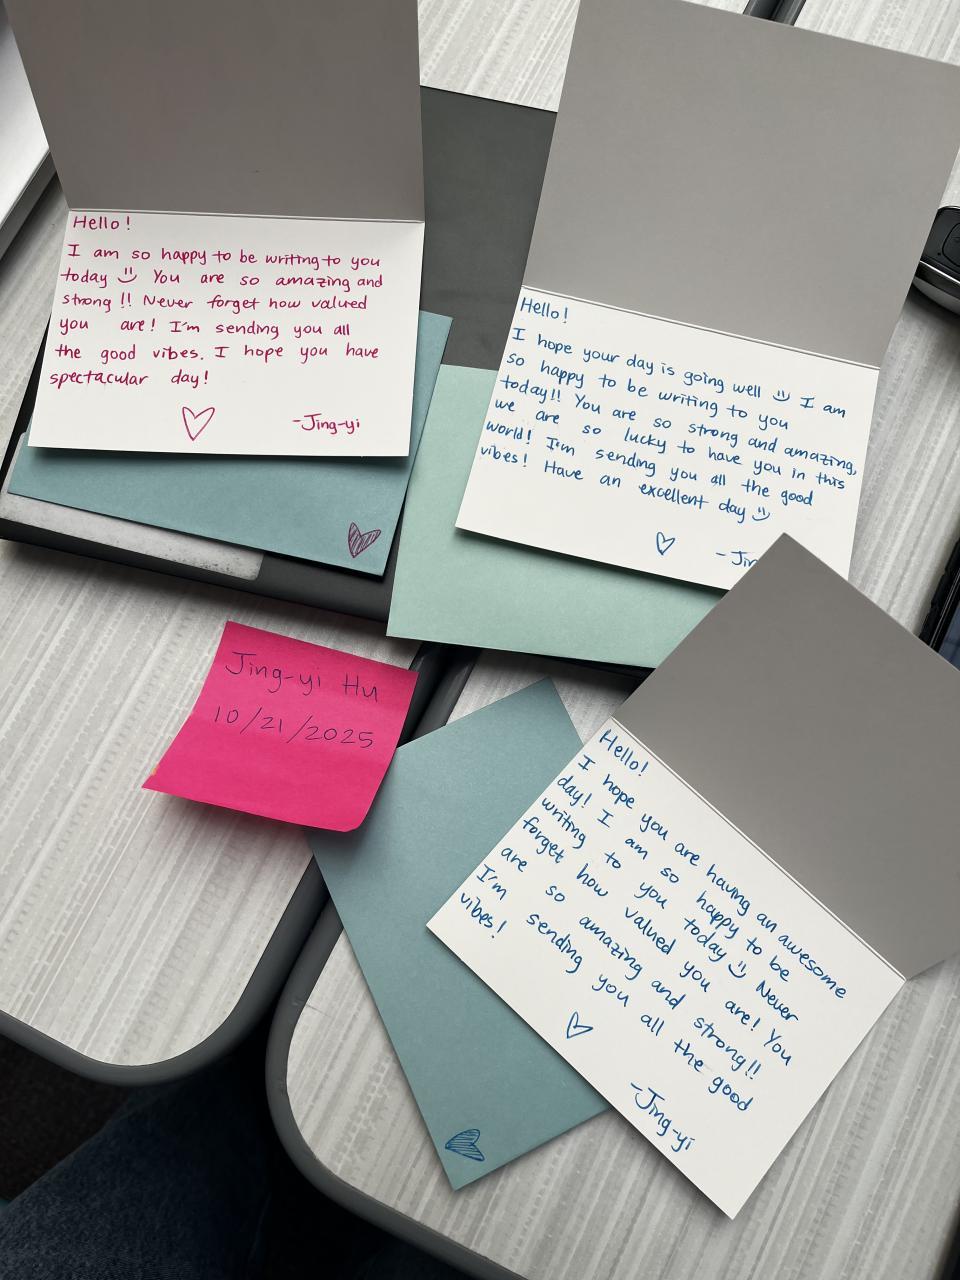 Hello!
I am so happy to be writing to you
today You are so amazing and
strong!! Never forget how valued
you are! I'm sending you all
the good vibes. I hope you have
spectacular day!
-Jing-yi
Hello!
I hope your day is going well I am
so happy to be writing to you
today!! You are so strong and amazing,
we are so lucky to have you in this
world! I'm sending you all the good
vibes! Have an excellent day
-Jin
Jing-yi Hu
10/21/2025
Hello!
I hope you are having an awesome
day! I am so happy to be
writing to you today Never
forget how valued you are! You
are so amazing and strong!!
I'm sending you all the good
vibes!
-Jing-yi